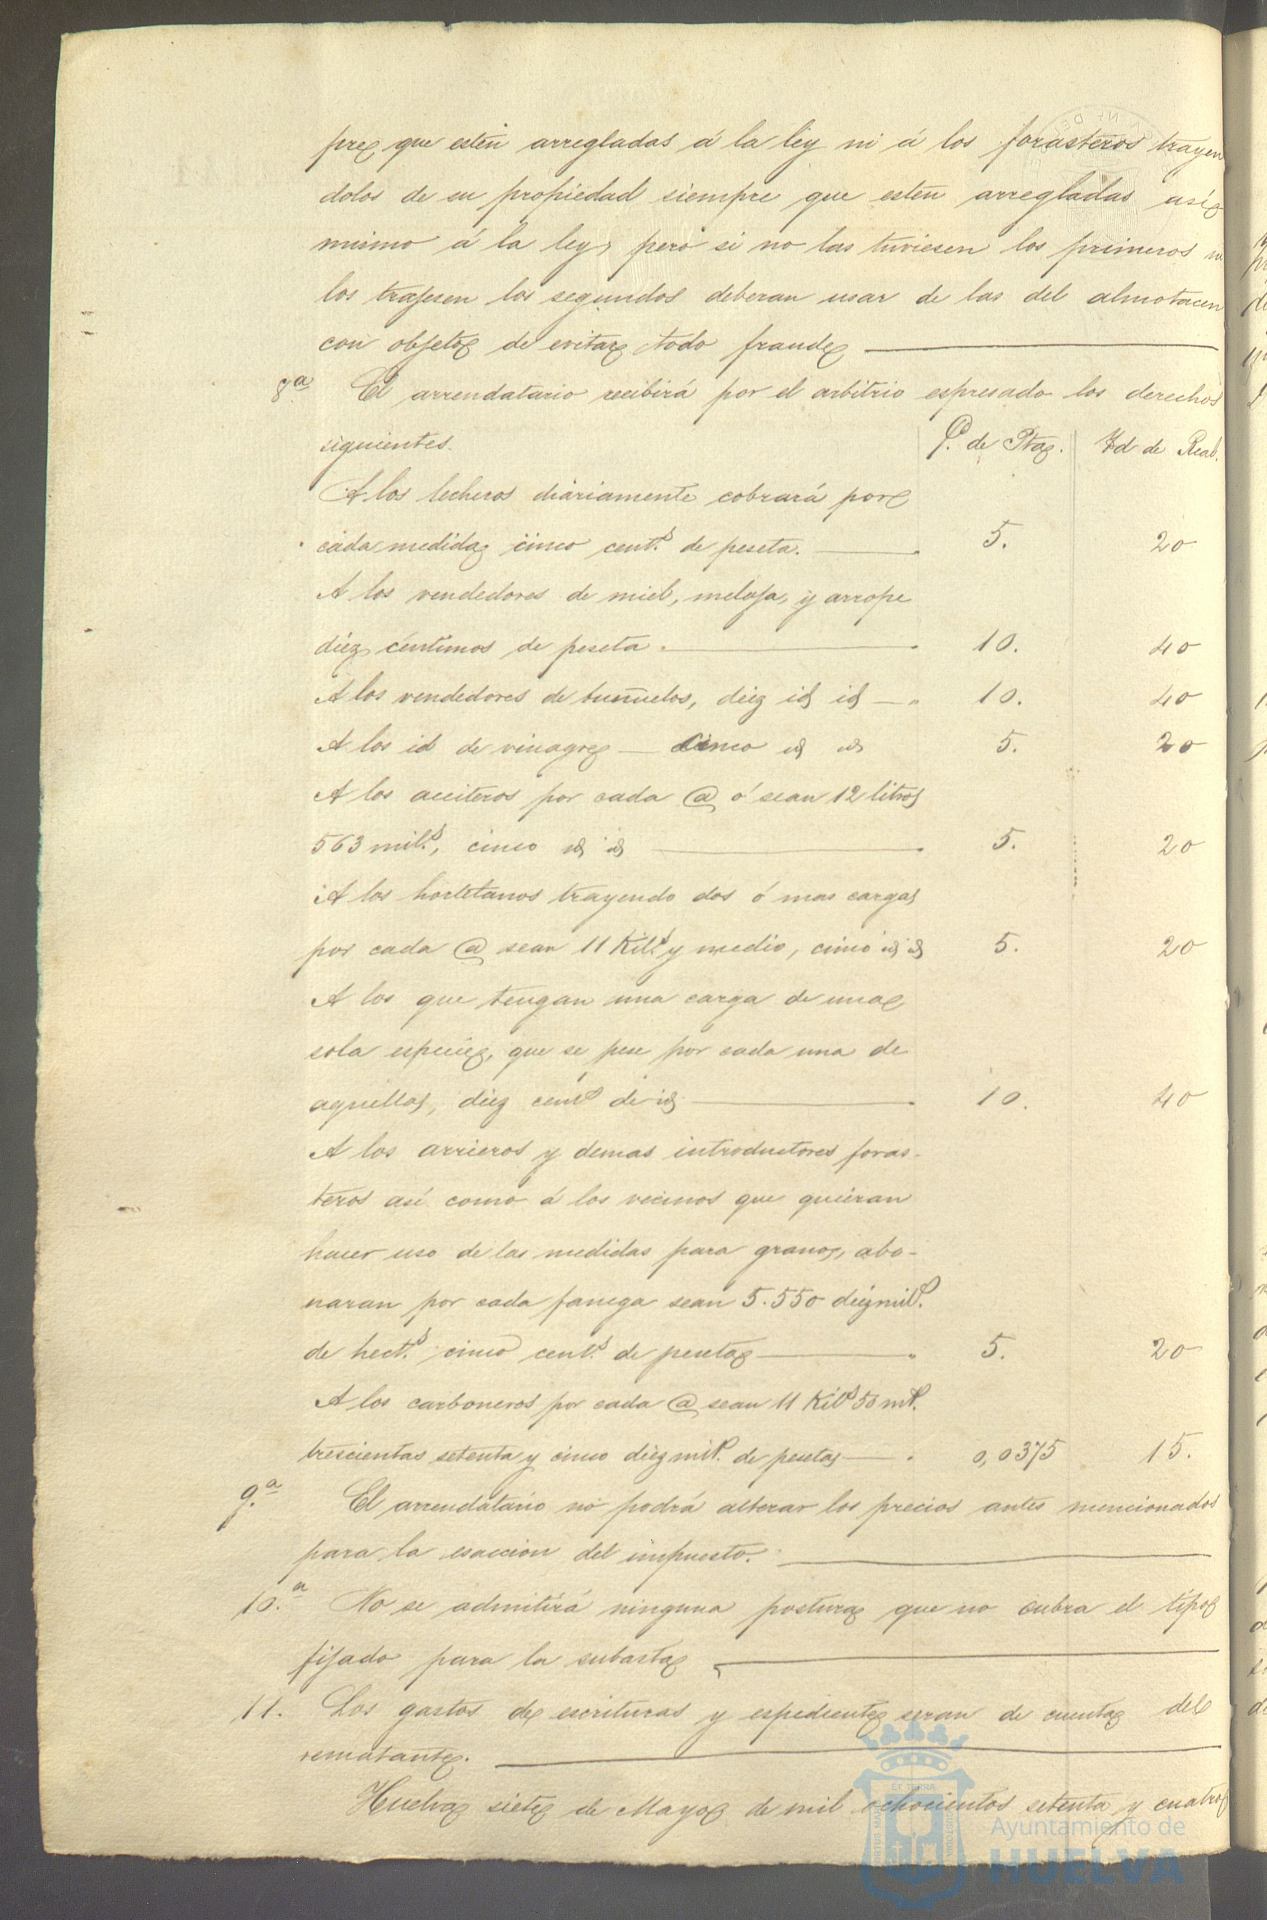 pre que esten arregladas á la ley ni á los forasteros trayen
dolos de su propiedad siempre que esten arregladas asi
mismo á la ley, pero si no las tuviesen los primeros ni
los trajesen los segundos deberan usar de las del almotacen
con objeto de evitar todo fraude
8.ª El arrendatario recibirá por el arbitrio espresado los derechos
siguientes. C. de Ptas. Id de Real.
A los lecheros diariamente cobrará por
cada medida cinco cent.s de peseta. 5. 20
A los vendedores de miel, meloja, y arrope
diez centimos de peseta. 10. 40
A los vendedores de buñuelos, diez id id 10. 40
A los id de vinagre cinco id id 5. 20
A los aceiteros por cada @ ó sean 12 litros
563 mil.s, cinco id id 5. 20
A los hortelanos trayendo dos ó mas cargas
por cada @ sean 11 Kil.s y medio, cinco id id 5. 20
A los que tengan una carga de una
sola especie, que se pese por cada una de
aquellas, diez cent.s de id 10. 40
A los arrieros y demas introductores foras-
teros asi como á los vecinos que quieran
hacer uso de las medidas para granos, abo-
naran por cada fanega sean 5.550 diezmil.s
de hect.s cinco cent.s de peseta 5. 20
A los carboneros por cada @ sean 11 Kil.s 50 mil.
trescientas setenta y cinco diezmil.s de peseta 0,0375 15.
9.ª El arrendatario no podrá alterar los precios antes mencionados
para la esaccion del impuesto.
10.ª No se admitirá ninguna postura que no cubra el tipo
fijado para la subasta
11. Los gastos de escrituras y espediente seran de cuenta del
rematante.
Huelva siete de Mayo de mil ochocientos setenta y cuatro
ET TERRA
Ayuntamiento de
HUELVA